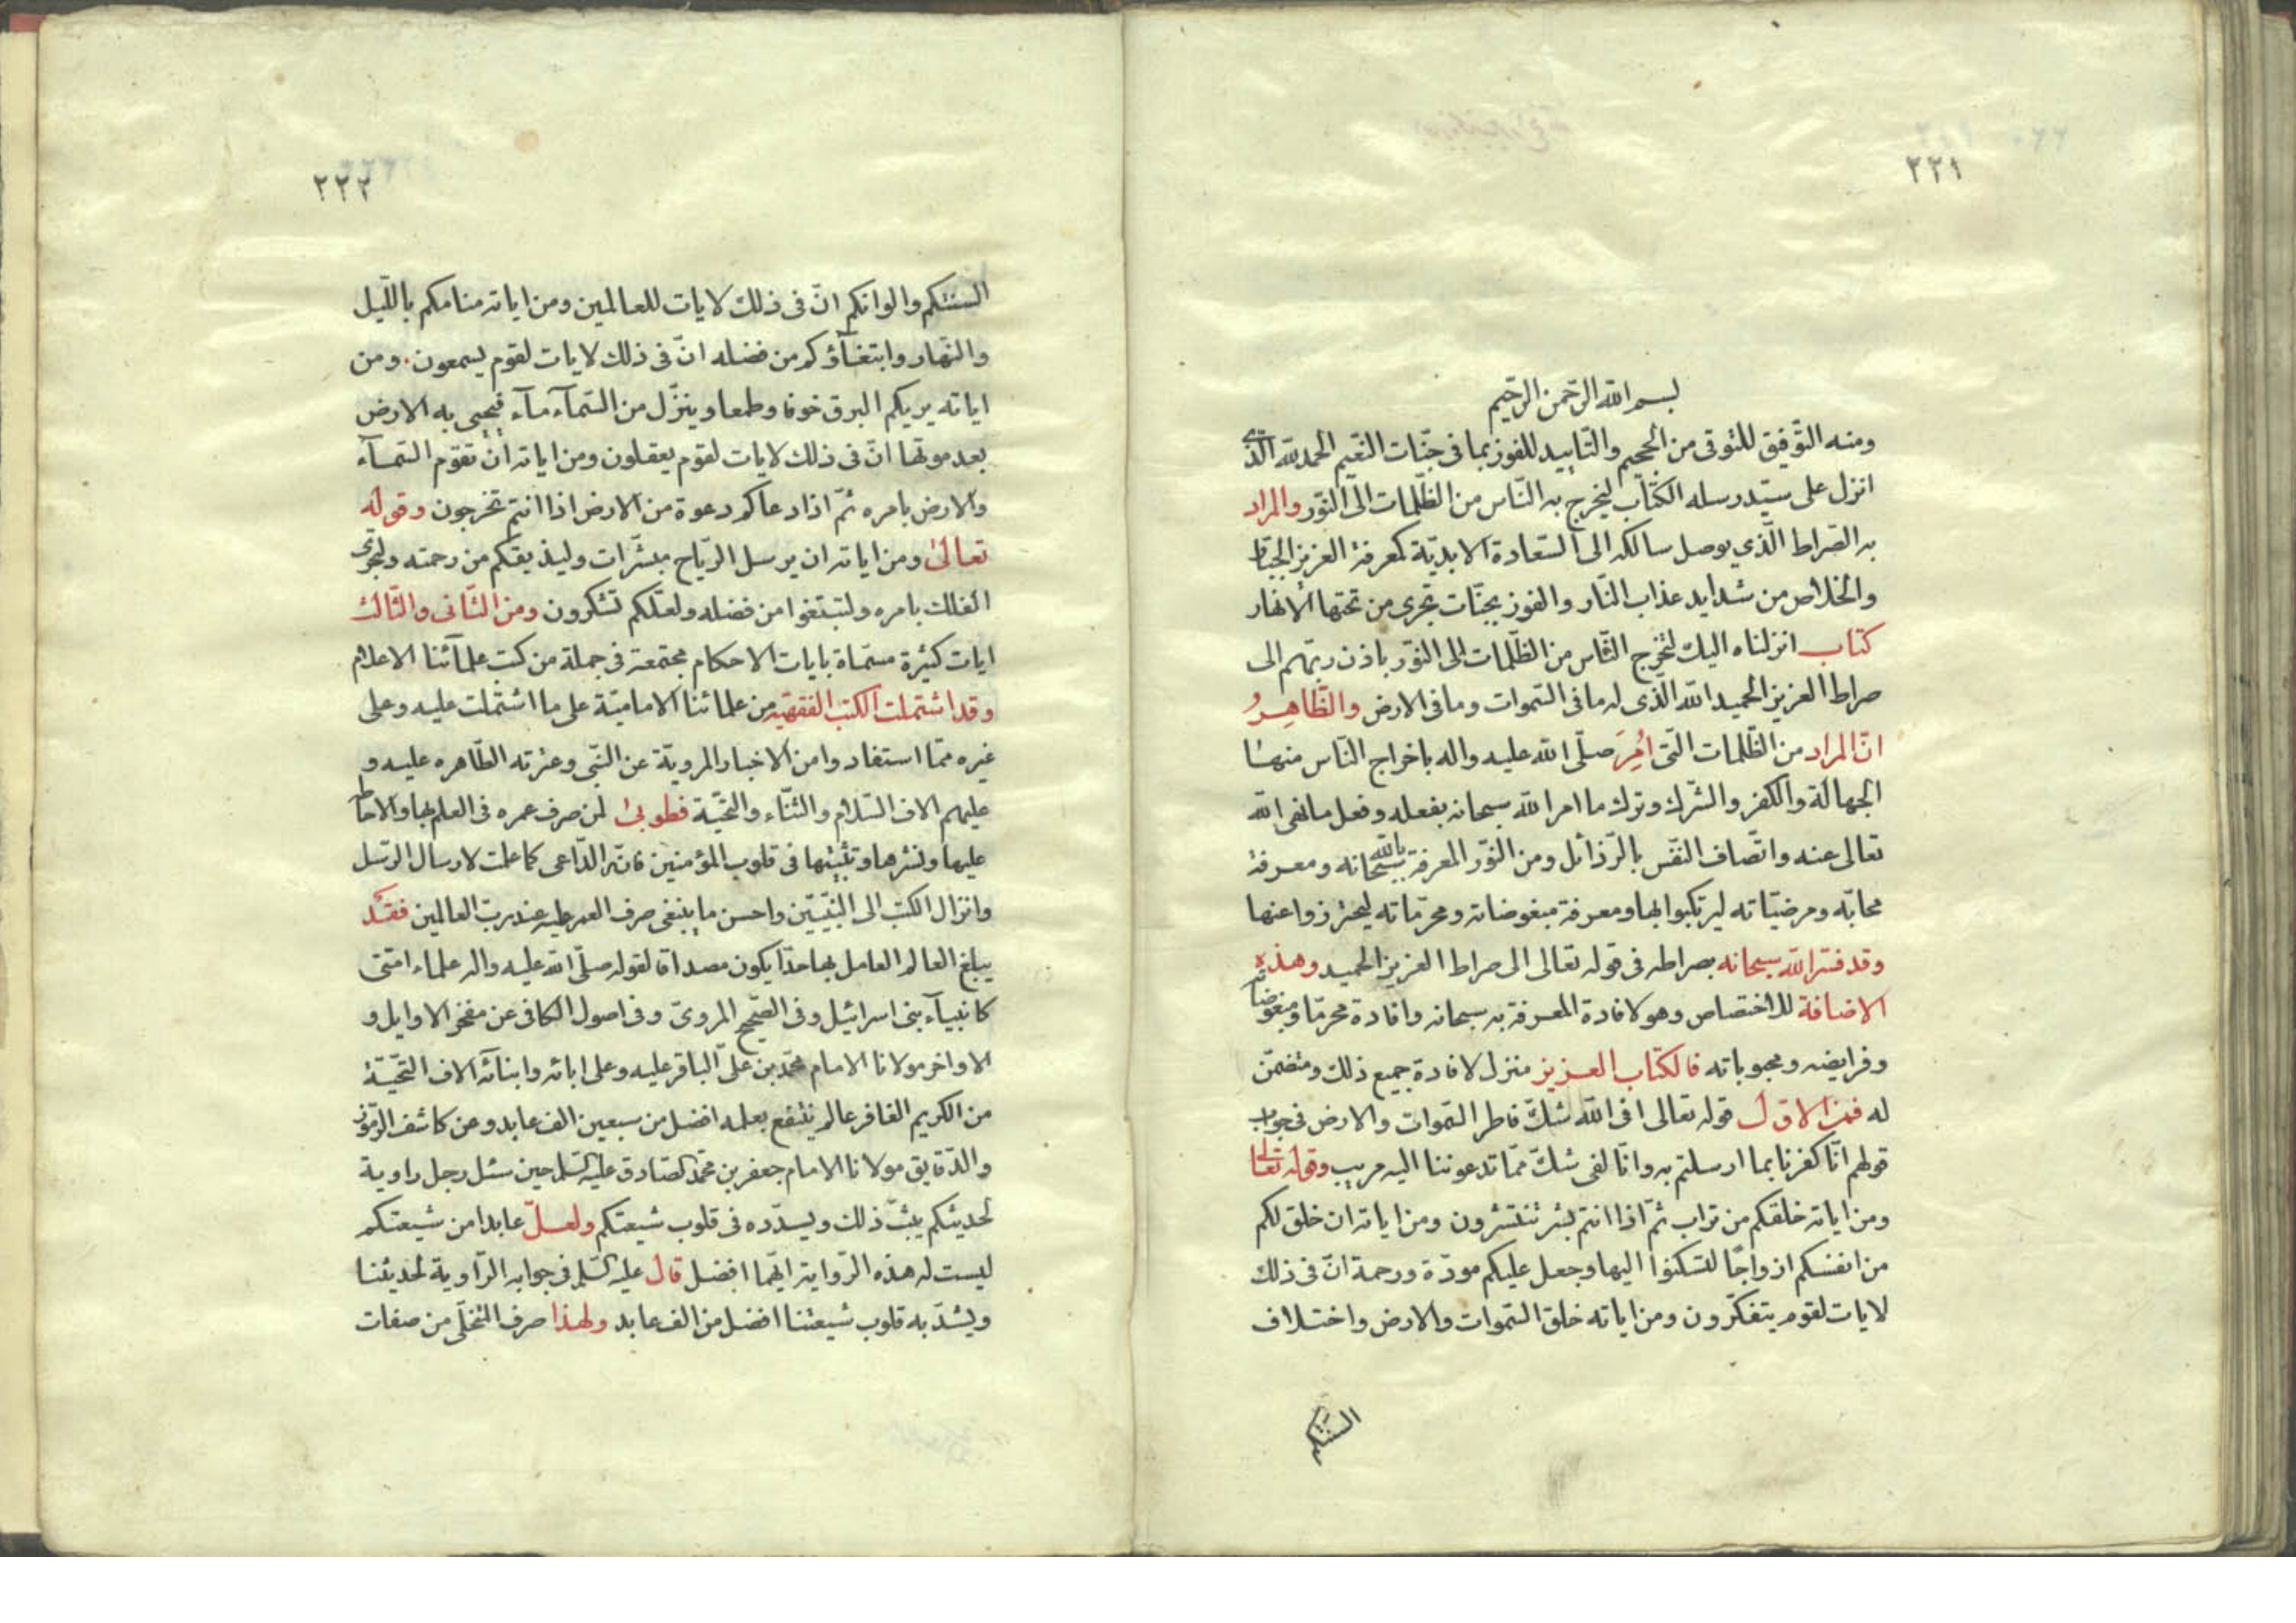 ٢٢١
بسم الله الرّحمن الرّحيم
ومنه التّوفيق للتّوقى من الجحيم والتّاييد للفوز بما فى جنّات النّعيم الحمد لله الّذى
انزل على سيّد رسله الكتاب ليخرج به النّاس من الظّلمات الى النّور والمراد
به الصّراط الّذي يوصل سالكه الى السّعادة الابديّة كمعرفة العزيز الجبّار
والخلاص من شدايد عذاب النّار والفوز بجنّات تجرى من تحتها الانهار
كتاب انزلناه اليك لتخرج النّاس من الظّلمات الى النّور باذن ربّهم الى
صراط العزيز الحميد الله الّذى له ما فى السّموات وما فى الارض والظّاهِرُ
انّ المراد من الظّلمات الّتى اُمِرَ صلّى الله عليه واله باخراج النّاس منها
الجهالة والكفر والشّرك وترك ما امر الله سبحانه بفعله وفعل ما نهى الله
تعالى عنه واتّصاف النّفس بالرّذائل ومن النّور المعرفة بالله سبحانه ومعرفة
محابّه ومرضيّاته ليرتكبوا بها ومعرفة مبغوضاته ومحرّماته ليحترزوا عنها
وقد فسّر الله سبحانه بصراطه فى قوله تعالى الى صراط العزيز الحميد وهذه
الاضافة للاختصاص وهو لافادة المعرفة به سبحانه وافادة محرّما ومبغوضاته
وفرايضه ومحبوباته فالكتاب العزيز منزل لافادة جميع ذلك ومتضمّن
له فمن الاوّل قوله تعالى افى الله شكّ فاطر السّموات والارض فى جواب
قولهم انّا كفرنا بما ارسلتم به وانّا لفى شكّ ممّا تدعوننا اليه مريب وقوله تعالى
ومن اياته خلقكم من تراب ثمّ اذا انتم بشر تنتشرون ومن اياته ان خلق لكم
من انفسكم ازواجًا لتسكنوا اليها وجعل عليكم مودّة ورحمة انّ فى ذلك
لايات لقوم يتفكّرون ومن اياته خلق السّموات والارض واختلاف
السنتكم
٢٢٢
السنتكم والوانكم انّ فى ذلك لايات للعالمين ومن اياته منامكم باللّيل
والنّهار وابتغآؤكم من فضله انّ فى ذلك لايات لقوم يسمعون. ومن
اياته يريكم البرق خوفا وطمعا وينزّل من السّمآء مآء فيحيى به الارض
بعد موتها انّ فى ذلك لايات لقوم يعقلون ومن اياته ان تقوم السّمآء
والارض بامره ثمّ اذا دعاكم دعوة من الارض اذا انتم تخرجون وقوله
تعالىٰ ومن اياته ان يرسل الرّياح مبشّرات وليذيقكم من رحمته ولتجرى
الفلك بامره ولتبتغوا من فضله ولعلّكم تشكرون ومن الثّانى والثّالث
ايات كثيرة مسمّاة بايات الاحكام مجتمعة فى جملة من كتب علمآئنا الاعلام
وقد اشتملت الكتب الفقهيّه من علمائنا الاماميّة على ما اشتملت عليه وعلى
غيره ممّا استفادوا من الاخبار المرويّة عن النّبى وعترته الطّاهره عليه و
عليهم الاف السّلام والثّناء والتّحيّة فطوبىٰ لمن صرف عمره فى العلم بها والاحاطة
عليها ونشرها وتثبيتها فى قلوب المؤمنين فانّه الدّاعى كما علمت لارسال الرّسل
وانزال الكتب الى النّبيّين واحسن ما ينبغى صرف العمر عليه عند ربّ العالمين فقد
يبلغ العالم العامل بها حدّا يكون مصداقا لقوله صلّى الله عليه واله علماء امّتى
كانبيآء بنى اسرائيل وفى الصّحيح المروىّ وفى اصول الكافى عن مفخر الاوايل و
الاواخر مولانا الامام محمّد بن علىّ الباقر عليه وعلى ابائه وابنائه الاف التّحيّة
من الكريم الغافر عالم ينتفع بعلمه افضل من سبعين الف عابد وعن كاشف الرّموز
والدّقايق مولانا الامام جعفر بن محمّد الصّادق عليه السّلم حين سئل رجل راوية
لحديثكم يبثّ ذلك ويسدّده فى قلوب شيعتكم ولعلّ عابدا من شيعتكم
ليست له هذه الرّواية ايّهما افضل قال عليه السّلم فى جوابه الرّاوية لحديثنا
ويشدّ به قلوب شيعتنا افضل من الف عابد ولهذا صرف المتخلّى من صفات